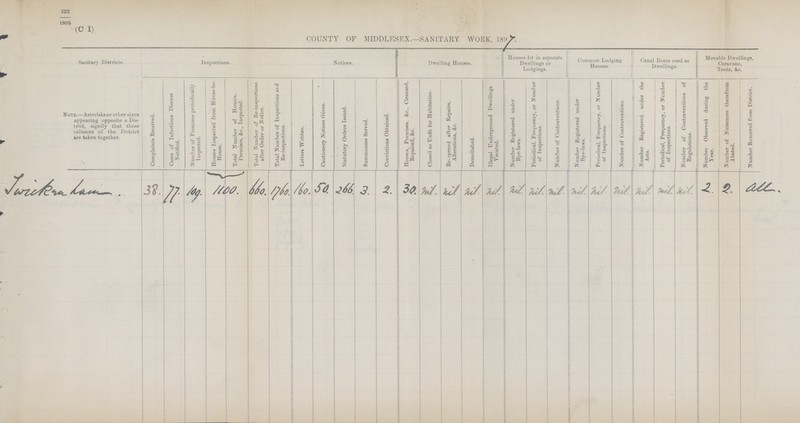 222
1898
(C I)
COUNTY OF MIDDLESEX.—SANITARY WORK, 1897
Sanitary Districts.
NOTE.—Asterisks or other signs appearing opposite a District, signify that those columns of the District are taken together.
Inspections.
Complaints Received.
Cases of Infectious Disease Notified.
Number of Premises periodically Inspected.
Houses Inspected from House-to-House.
Total Number of Houses, Premises, &c., Inspected.
Total Number of Re-inspections after Order or Notice.
Total Number of Inspections and Re-inspections.
Notices.
Letters Written.
Cautionary Notices Given.
Statutory Orders Issued.
Summonses Served.
Convictions Obtained.
Dwelling Houses.
Houses, Premises, &c., Cleansed, Repaired, &c.
Closed as Unfit for Habitation.
Re-opened after Repairs, Alterations, &c.
Demolished.
Illegal Underground Dwellings Vacated.
Houses let in separate Dwellings or Lodgings.
Number Registered under Bye-laws.
Periodical, Frequency, or Number of Inspections.
Number of Contraventions.
Common Lodging Houses.
Number Registered under Bye-laws.
Periodical, Frequency, or Number of Inspections.
Number of Contraventions.
Canal Boats used as Dwellings.
Number Registered under the Acts.
Periodical, Frequency, or Number of Inspections.
Number of Contraventions of Regulations.
Movable Dwellings, Caravans, Tents, &c.
Number Observed during the Year.
Number of Nuisances therefrom Abated.
Number Removed from District.
Twickenham. 38. 77. 109. 1100. 660. 1760. 160. 50. 266. 3. 2. 30. nil. nil nil nil. nil nil. nil. nil. nil. nil nil nil nil. 2. 2. all.